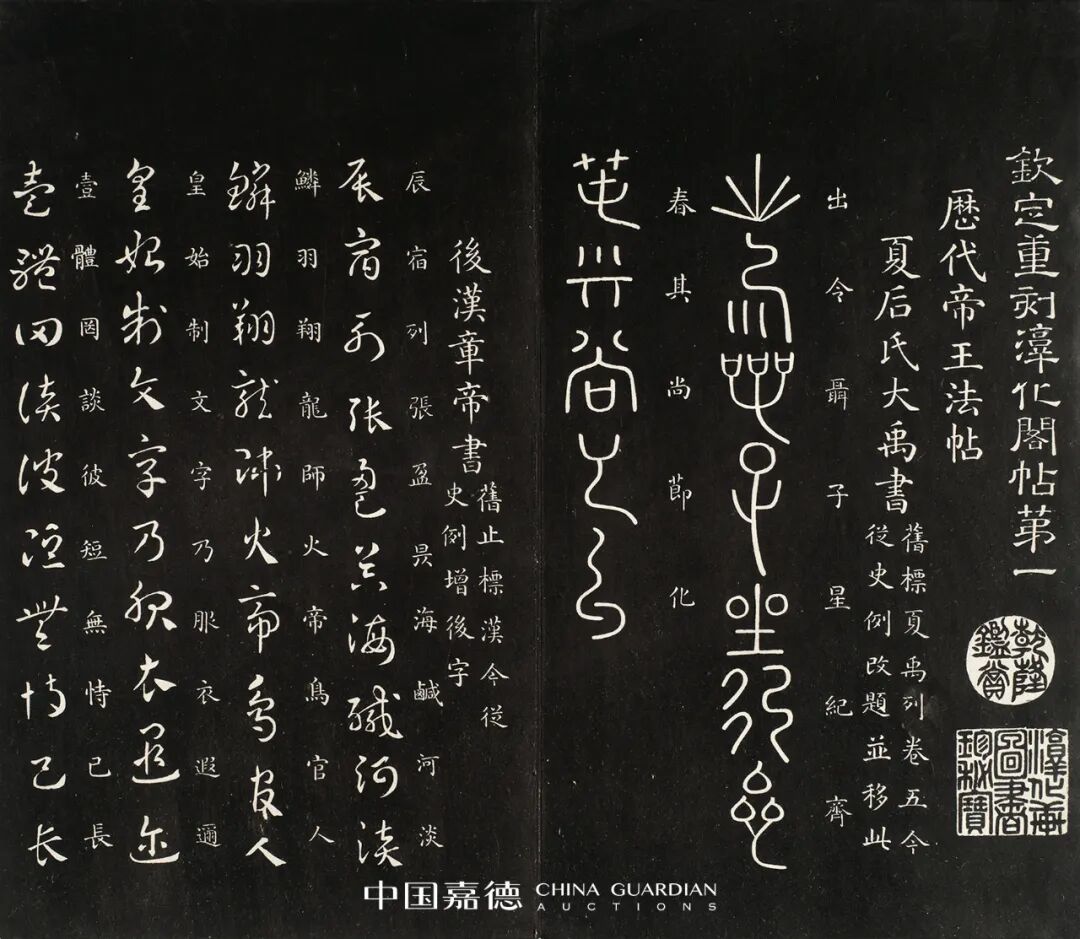 欽定重刻淳化閣帖第一
乾隆鑑賞
淳化軒圖書珍秘寶
歷代帝王法帖
夏后氏大禹書
舊標夏禹列卷五今
從史例改題並移此
出令聶子星紀齊
出令聶子星紀齊
春其尚節化
春其尚節化
後漢章帝書
舊止標漢今從
史例增後字
辰宿列張盈昃海鹹河淡
辰宿列張盈昃海鹹河淡
鱗羽翔龍師火帝鳥官人
鱗羽翔龍師火帝鳥官人
皇始制文字乃服衣遐邇
皇始制文字乃服衣遐邇
壹體罔談彼短無恃己長
壹體罔談彼短無恃己長
中国嘉德 CHINA GUARDIAN AUCTIONS